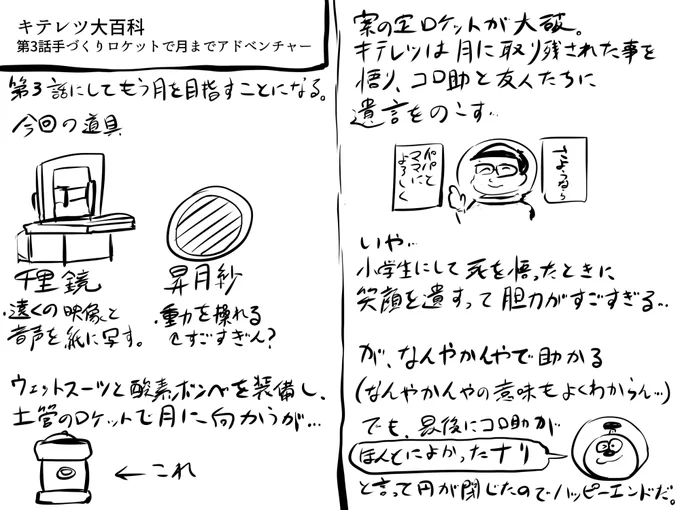 キテレツ大百科
第3話手づくりロケットで月までアドベンチャー
第3話にしてもう月を目指すことになる。
今回の道具
千里鏡
・遠くの映像と
音声を紙に写す。
昇月紗
・重力を操れる
↑すごすぎん?
ウェットスーツと酸素ボンベを装備し、
土管のロケットで月に向かうが…
←これ
案の定ロケットが大破。
キテレツは月に取り残された事を
悟り、コロ助と友人たちに
遺言をのこす…
パパと
ママに
よろしく
さようなら
いや…
小学生にして死を悟ったときに
笑顔を遺すって胆力がすごすぎる…
が、なんやかんやで助かる
(なんやかんやの意味もよくわからん…)
でも、最後にコロ助が
ほんとによかったナリ
と言って円が閉じたのでハッピーエンドだ。